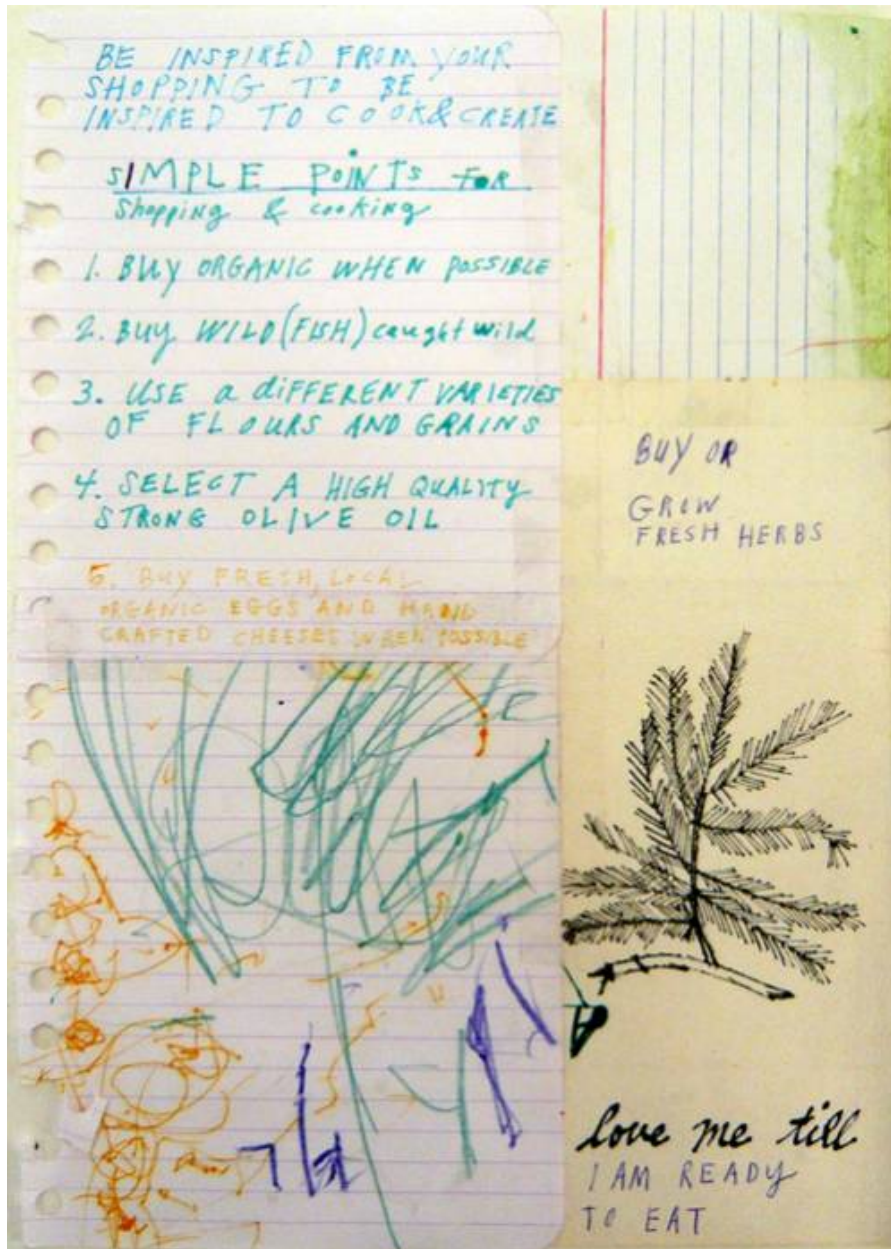 BE INSPIRED FROM YOUR
SHOPPING TO BE
INSPIRED TO COOK & CREATE
SIMPLE POINTS FOR
Shopping & cooking
1. BUY ORGANIC WHEN POSSIBLE
2. BUY WILD (FISH) caught wild
3. USE a diFFERENT VARIETIES
OF FLOURS AND GRAINS
4. SELECT A HIGH QUALITY
STRONG OLIVE OIL
5. BUY FRESH, LOCAL
ORGANIC EGGS AND HAND
CRAFTED CHEESES WHEN POSSIBLE
BUY OR
GROW
FRESH HERBS
love me till
I AM READY
TO EAT